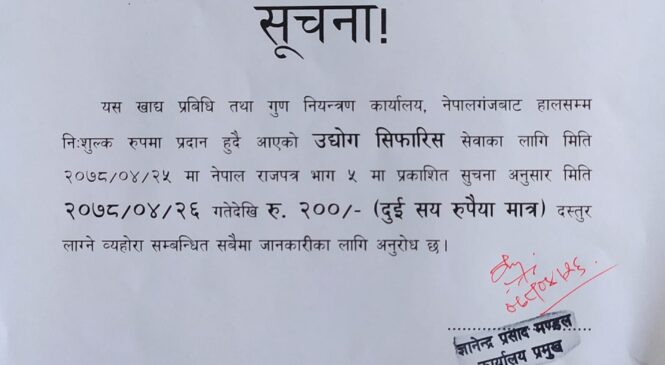 सूचना!
यस खाद्य प्रबिधि तथा गुण नियन्त्रण कार्यालय, नेपालगंजबाट हालसम्म
निःशुल्क रुपमा प्रदान हुदै आएको उद्योग सिफारिस सेवाका लागि मिति
२०७८/०४/२५ मा नेपाल राजपत्र भाग ५ मा प्रकाशित सुचना अनुसार मिति
२०७८/०४/२६ गतेदेखि रु. २००/- (दुई सय रुपैया मात्र) दस्तुर
लाग्ने व्यहोरा सम्बन्धित सबैमा जानकारीका लागि अनुरोध छ।
ज्ञानेन्द्र प्रसाद मण्डल
कार्यालय प्रमुख